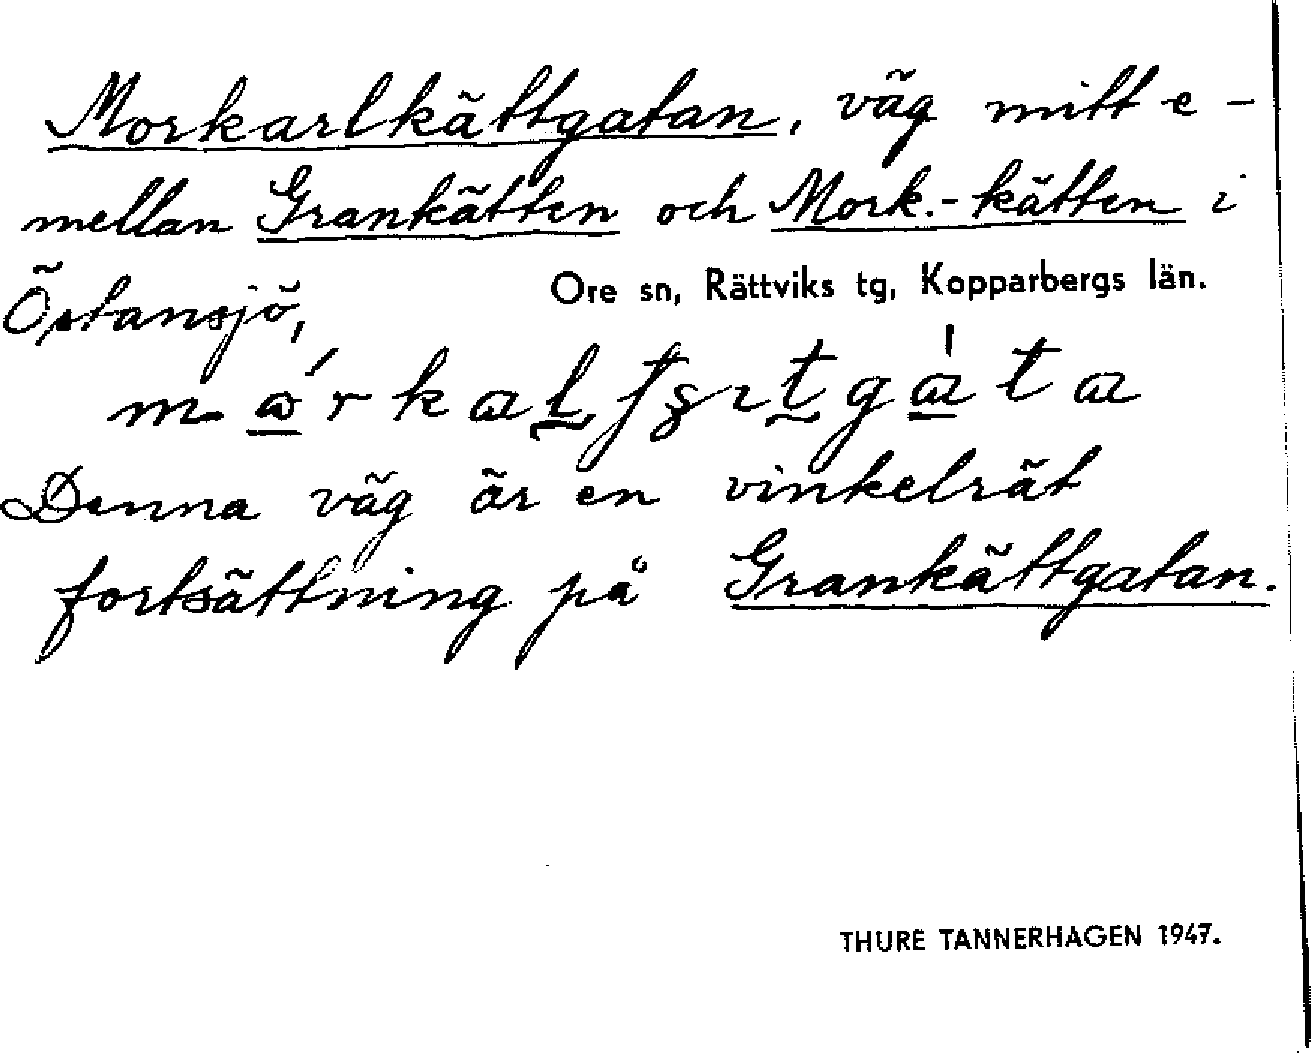 Morkarlkättgatan, väg mitt e-
mellan Grankätten och Mork.-kätten i
Östansjö,
Ore sn, Rättviks tg, Kopparbergs län.
Denna väg är en vinkelrät
fortsättning på Grankättgatan.
THURE TANNERHAGEN 1947.